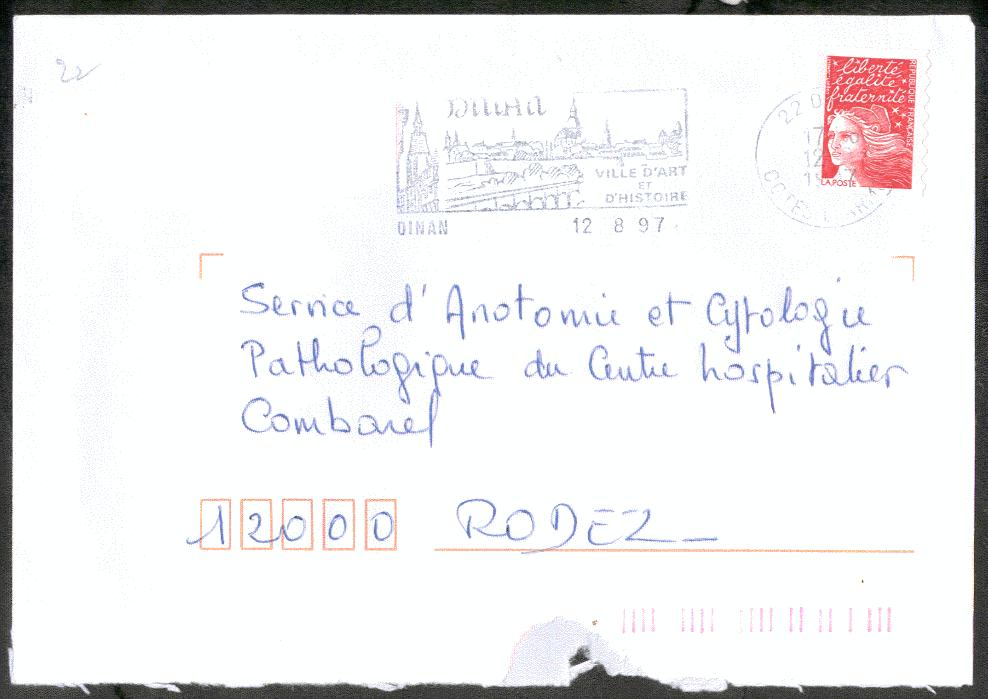 22
liberté
égalité
fraternité
RÉPUBLIQUE FRANÇAISE
LA POSTE
22 D
17
12
COTES
Dinan
VILLE D'ART
ET
D'HISTOIRE
DINAN 12 8 97
Service d'Anatomie et Cytologie
Pathologique du Centre hospitalier
Combarel
12000 RODEZ